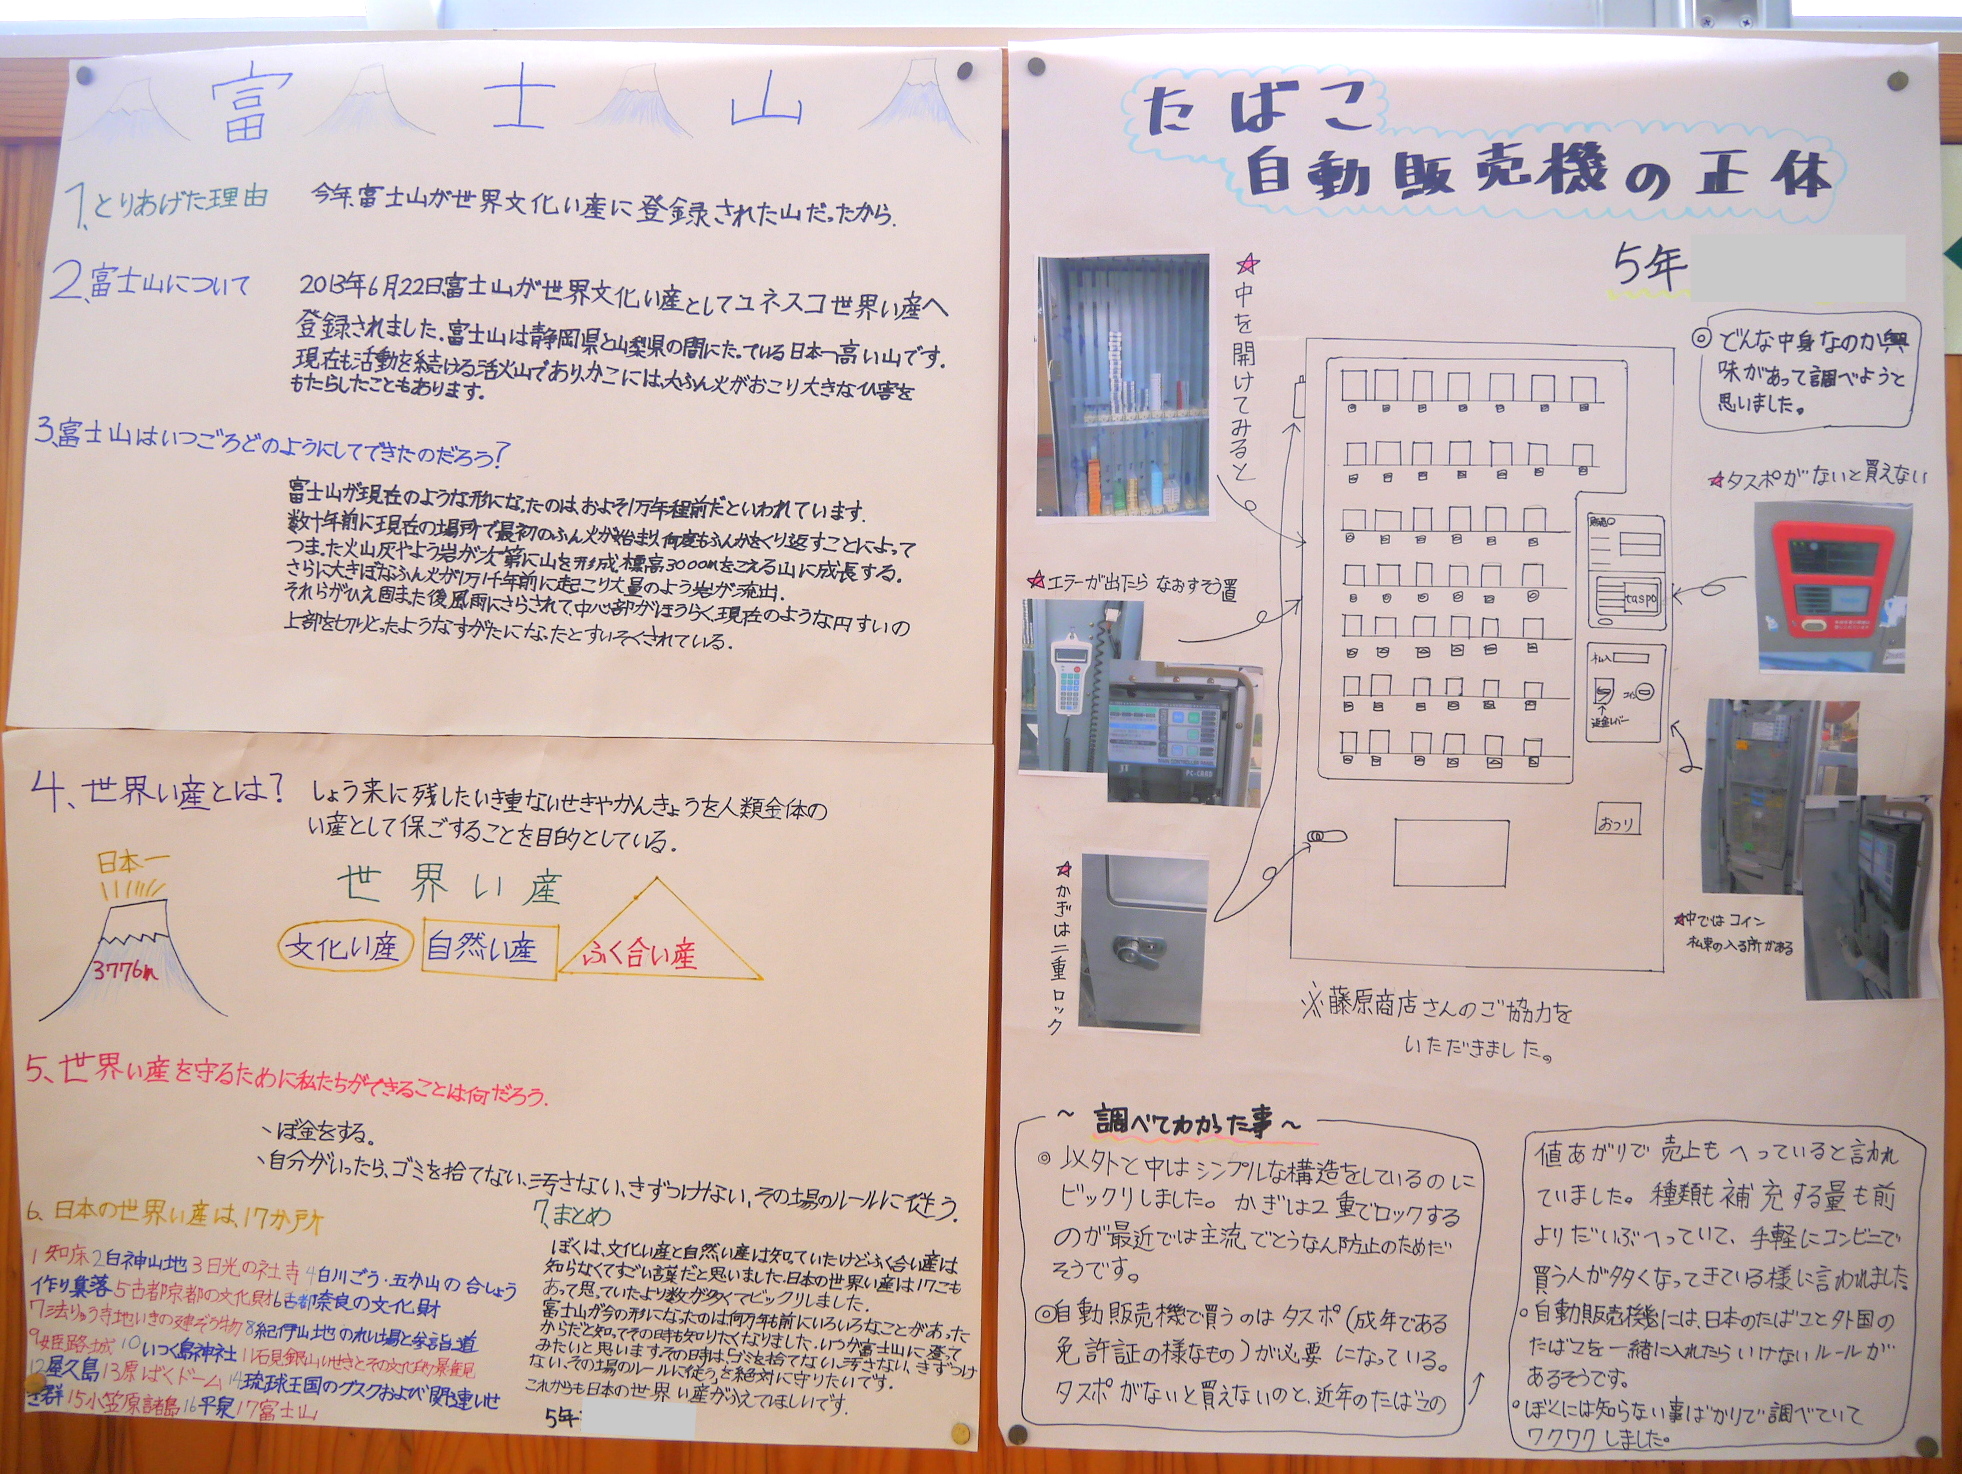 富士山
1、とりあげた理由
今年、富士山が世界文化い産に登録された山だったから.
2、富士山について
2013年6月22日、富士山が世界文化い産としてユネスコ世界い産へ
登録されました.富士山は静岡県と山梨県の間にたっている日本一高い山です.
現在も活動を続ける活火山であり、かこには、大ふん火がおこり大きなひ害を
もたらしたこともあります.
3、富士山はいつごろどのようにしてできたのだろう?
富士山が現在のような形になったのは、およそ1万年程前だといわれています.
数十年前に現在の場所で最初のふん火が始まり、何度もふんかをくり返すことによって
つまった火山灰やよう岩が次第に山を形成、標高3000mをこえる山に成長する.
さらに大きぼなふん火が1万1千年前に起こり大量のよう岩が流出.
それらがひえ固まった後風雨にさらされて、中心部がほうらく、現在のような円すいの
上部を切りとったようなすがたになったとすいそくされている.
4、世界い産とは?
しょう来に残したいき重ないせきやかんきょうを人類全体の
い産として保ごすることを目的としている.
日本一
3776m
世界い産
文化い産 自然い産 ふく合い産
5、世界い産を守るために私たちができることは何だろう.
、ぼ金をする。
、自分がいったら、ゴミを捨てない、汚さない、きずつけない、その場のルールに従う.
6、日本の世界い産は、17か所
1知床2白神山地3日光の社寺4白川ごう・五か山の合しょう
作り集落5古都京都の文化財6古都奈良の文化財
7法りゅう寺地いきの建ぞう物8紀伊山地のれい場と参詣道
9姫路城10いつく島神社11石見銀山いせきとその文化的景観
12屋久島13原ばくドーム14琉球王国のグスクおよび関連いせ
き群15小笠原諸島16平泉17富士山
7、まとめ
ぼくは、文化い産と自然い産は知っていたけどふく合い産は
知らなくてすごい言葉だと思いました.日本の世界い産は17こも
あって思っていたより数が多くてビックリしました.
富士山が今の形になったのは何万年も前にいろいろなことがあった
からだと知ってその時も知りたくなりました.いつか富士山に登って
みたいと思います.その時は、「ゴミを捨てない、汚さない、きずつけ
ない、その場のルールに従う」を絶対に守りたいです.
これからも日本の世界い産がふえてほしいです.
5年
たばこ
自動販売機の正体
5年
◎どんな中身なのか興
味があって調べようと
思いました。
☆中を開けてみると
☆タスポがないと買えない
☆エラーが出たらなおすそう置
taspo
札入
コイン
返金レバー
おつり
PC-CARD
☆かぎは二重ロック
☆中ではコイン
札束の入る所がある
※藤原商店さんのご協力を
いただきました。
~調べてわかった事~
◎以外と中はシンプルな構造をしているのに
ビックリしました。かぎは2重でロックする
のが最近では主流でとうなん防止のためだ
そうです。
◎自動販売機で買うのはタスポ(成年である
免許証の様なもの)が必要になっている。
タスポがないと買えないのと、近年のたばこの
値あがりで売上もへっていると言われ
ていました。種類も補充する量も前
よりだいぶへっていて、手軽にコンビニで
買う人が多くなってきている様に言われました
◦自動販売機には、日本のたばコと外国の
たばコを一緒に入れたらいけないルールが
あるそうです。
◦ぼくには知らない事ばかりで調べていて
ワクワクしました。